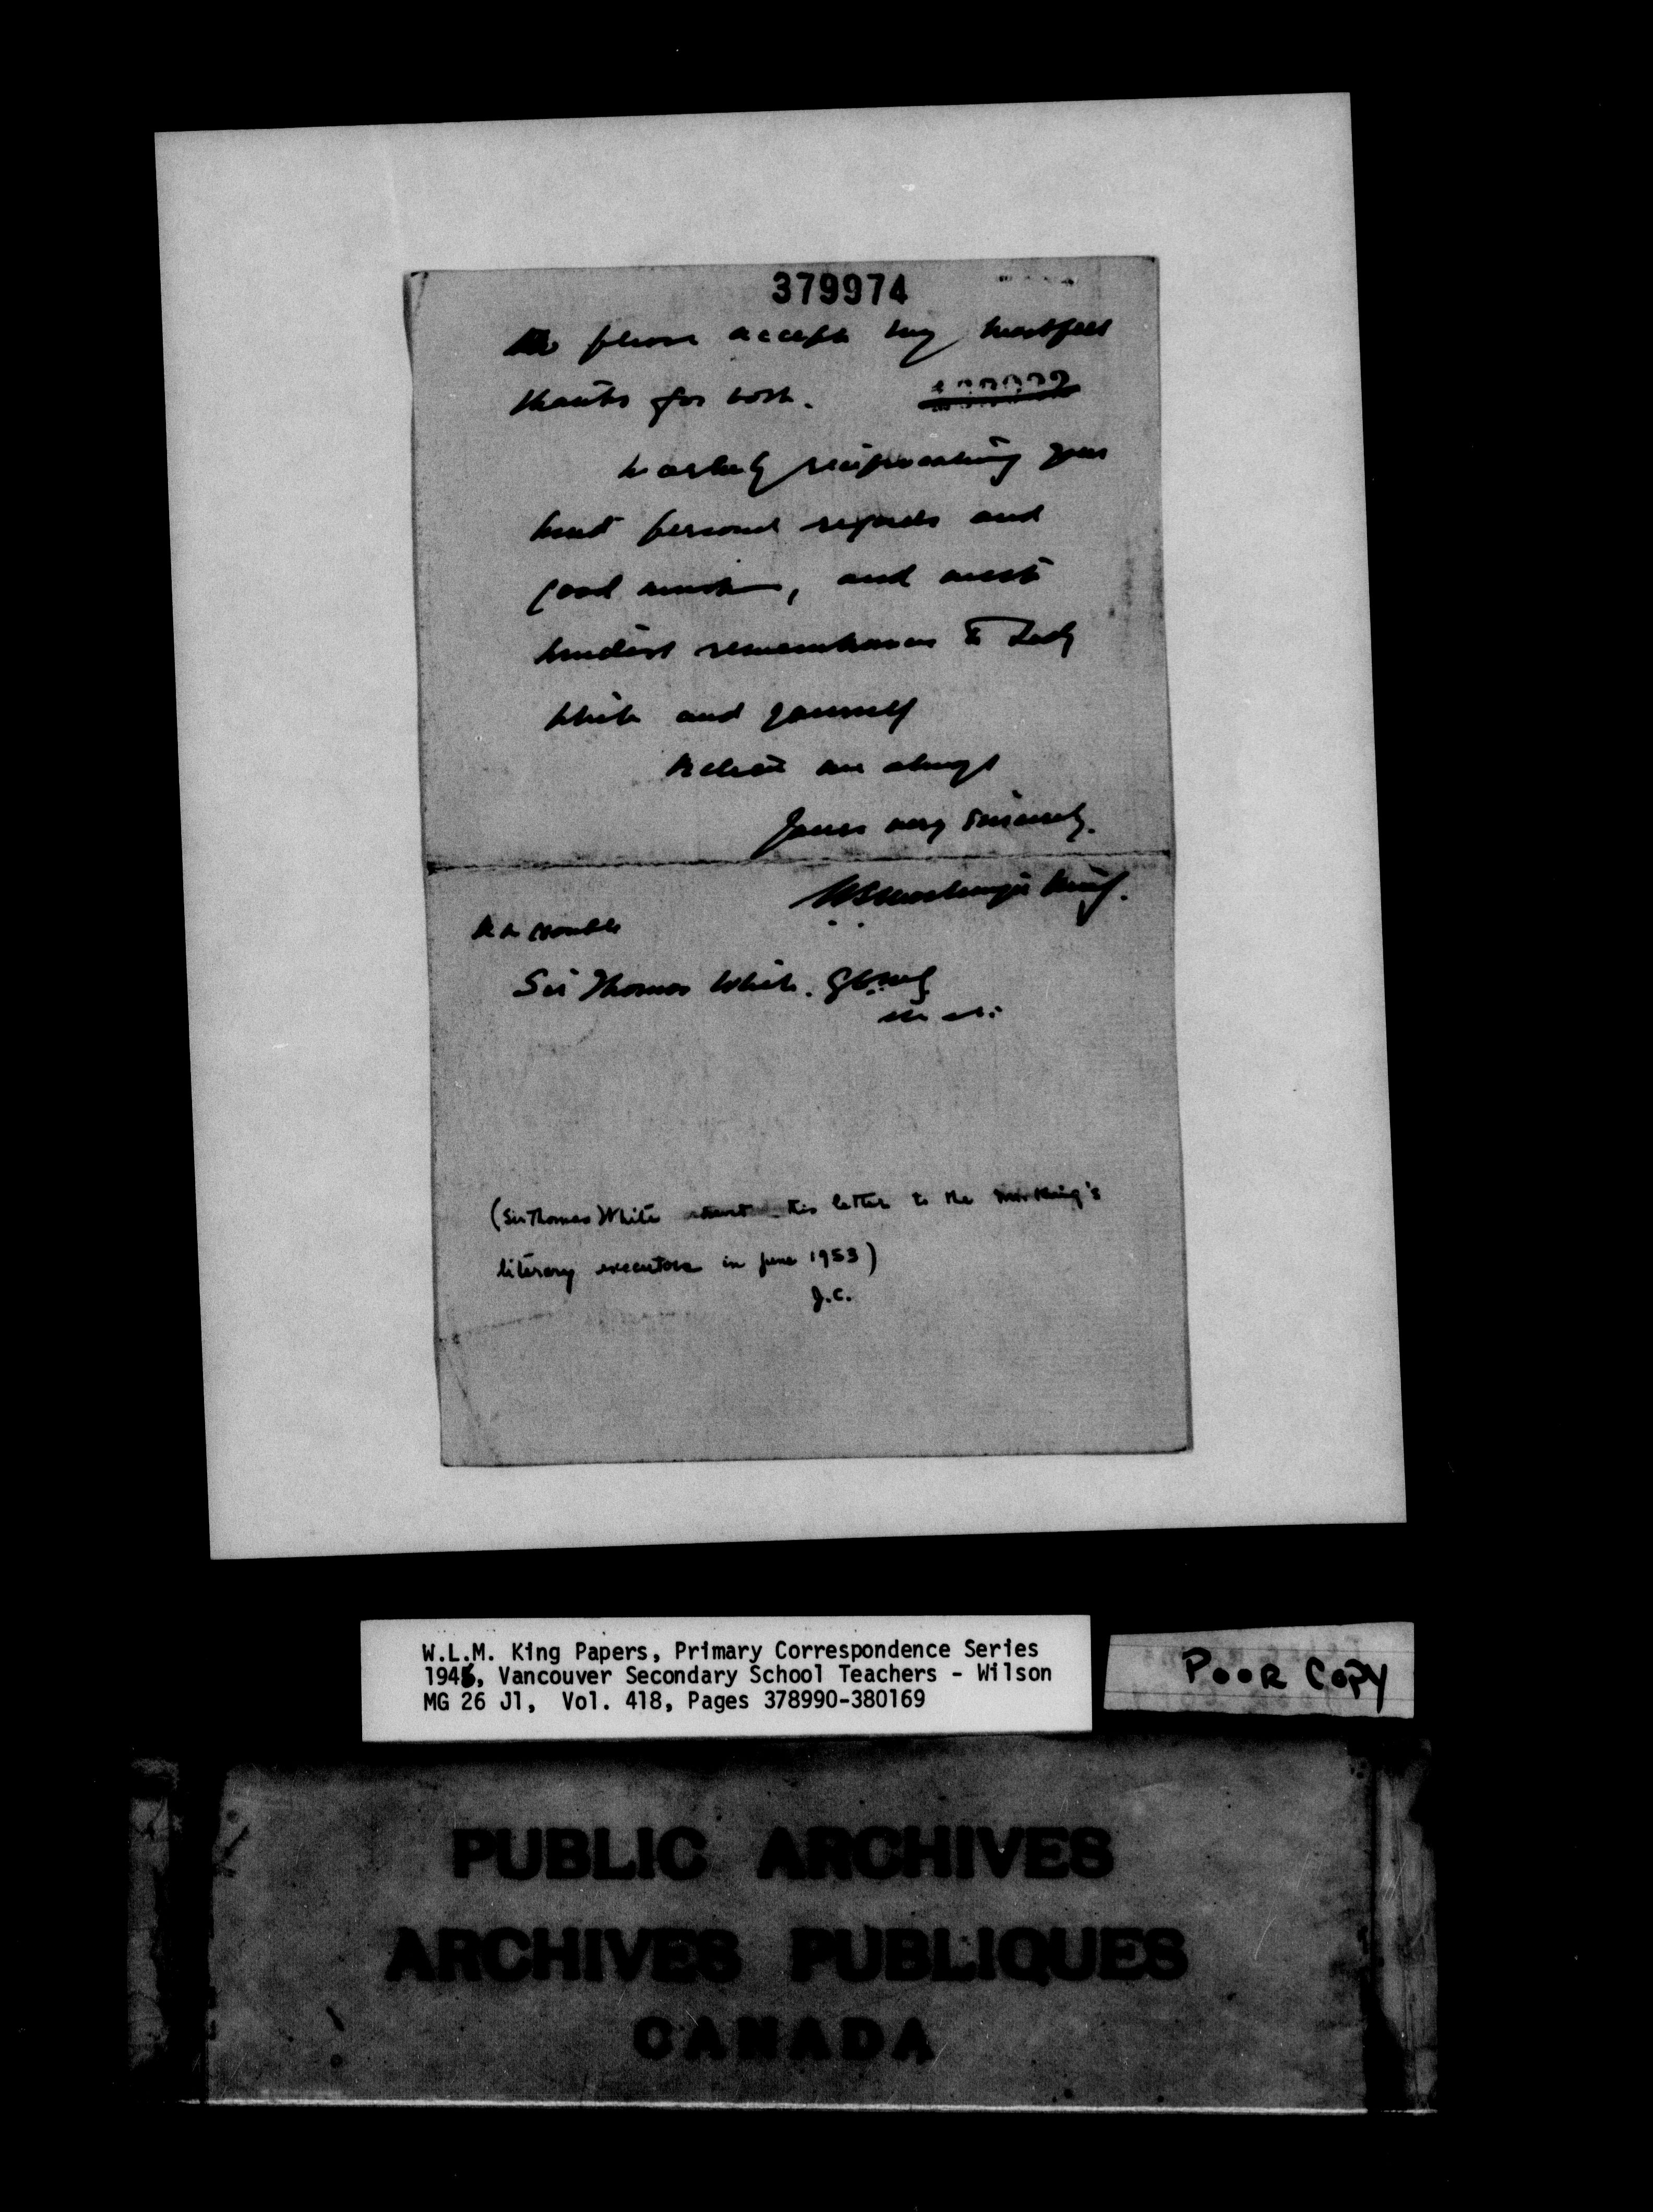 379974
Do please accept my heartfelt
thanks for both.
Heartily reciprocating your
kind personal regards and
good wishes, and with
kindest remembrances to Lady
White and yourself
Believe me always
Yours very sincerely.
W L Mackenzie King.
Sir Thomas White.
(Sir Thomas White this letter to the Mr. King's
literary executors in June 1953)
J.C.
W.L.M. King Papers, Primary Correspondence Series
1946, Vancouver Secondary School Teachers - Wilson
MG 26 J1, Vol. 418, Pages 378990-380169
POOR COPY
PUBLIC ARCHIVES
ARCHIVES PUBLIQUES
CANADA